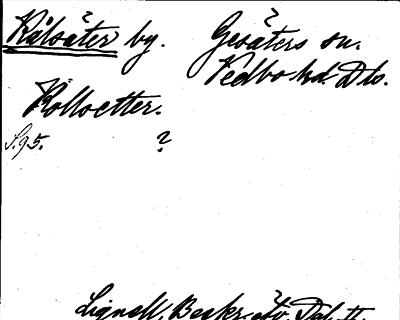 Rålsäter by. Gesäters sn.
Vedbo hd. Dls.
Rollsetter.
S. 95. ?
Lignell, Beskr. öv. Dal II.